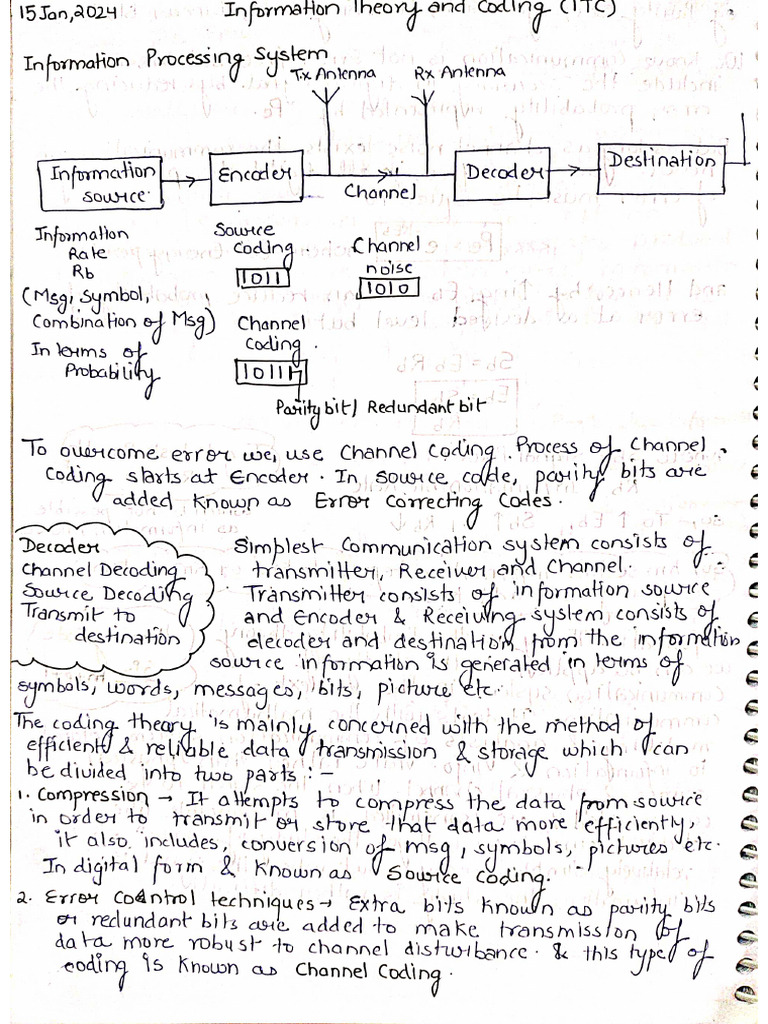 15 Jan, 2024 Information Theory and Coding (ITC)
Information Processing System
Tx Antenna Rx Antenna
Information source. Encoder Channel Decoder Destination
Information Rate Rb
(Msg, Symbol, Combination of Msg)
In terms of Probability
Source Coding
1011
Channel Coding.
10111
Parity bit / Redundant bit
Channel noise
1010
To overcome error we, use Channel Coding. Process of Channel
Coding starts at Encoder. In source code, parity bits are
added known as Error Correcting Codes.
Decoder
Channel Decoding
Source Decoding
Transmit to
destination
Simplest Communication system consists of
transmitter, Receiver and Channel.
Transmitter consists of information source
and Encoder & Receiving system consists of
decoder and destination from the information
source information is generated in terms of
symbols, words, messages, bits, picture etc.
The coding theory is mainly concerned with the method of
efficient & reliable data transmission & storage which can
be divided into two parts :-
1. Compression → It attempts to compress the data from source
in order to transmit or store that data more efficiently,
it also includes, conversion of msg, symbols, pictures etc.
In digital form & known as Source coding.
2. Error Control techniques → Extra bits known as parity bits
or redundant bits are added to make transmission of
data more robust to channel disturbance. & this type of
coding is known as Channel Coding.